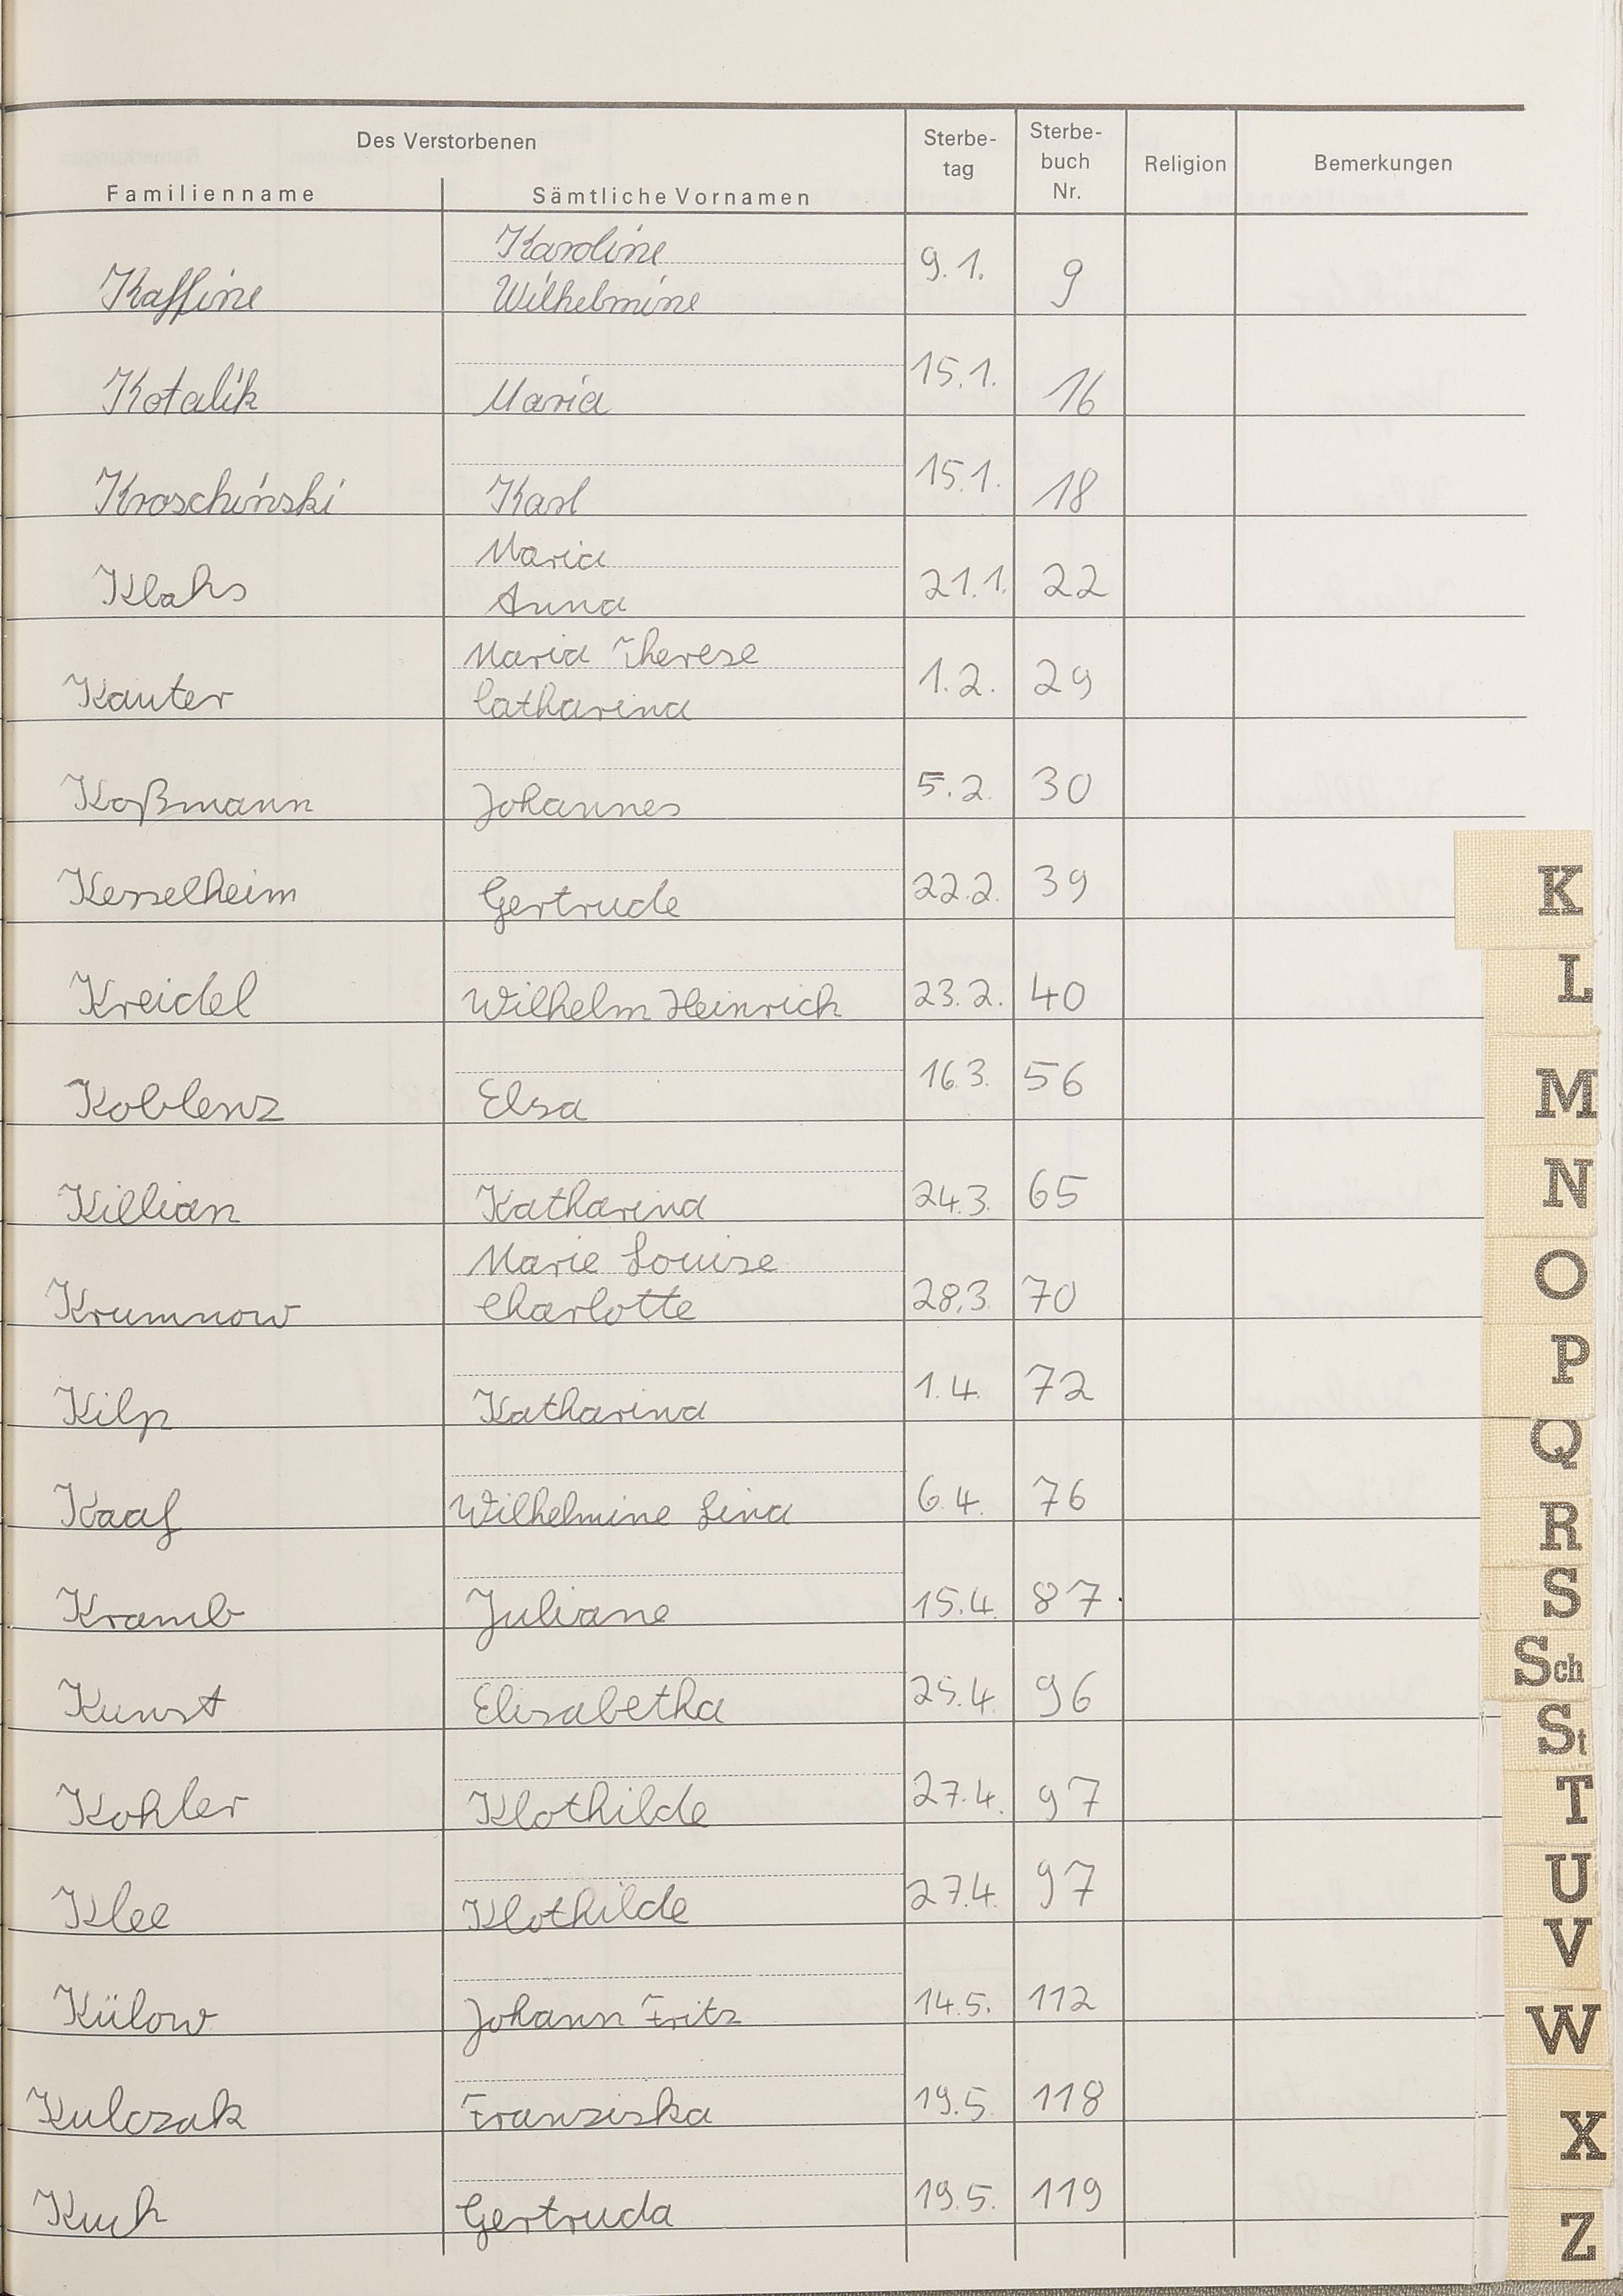 Des Verstorbenen
Familienname Sämtliche Vornamen Sterbe-tag Sterbe-buch Nr. Religion Bemerkungen
Karoline
Kaffine Wilhelmine 9.1. 9
Kotalik Maria 15.1. 16
Kroschinski Karl 15.1. 18
Maria
Klahs Anna 21.1. 22
Maria Therese
Kauter Catharina 1.2. 29
Koßmann Johannes 5.2. 30
Kesselheim Gertrude 22.2. 39
Kreidel Wilhelm Heinrich 23.2. 40
Koblenz Elsa 16.3. 56
Killian Katharina 24.3. 65
Marie Louise
Krumnow Charlotte 28.3. 70
Kilp Katharina 1.4. 72
Kaaf Wilhelmine Lina 6.4. 76
Kramb Juliane 15.4. 87
Kunst Elisabetha 25.4. 96
Kohler Klothilde 27.4. 97
Klee Klothilde 27.4. 97
Külow Johann Fritz 14.5. 112
Kulczak Franziska 19.5. 118
Kuch Gertruda 19.5. 119
K
L
M
N
O
P
Q
R
S
Sch
St
T
U
V
W
X
Z